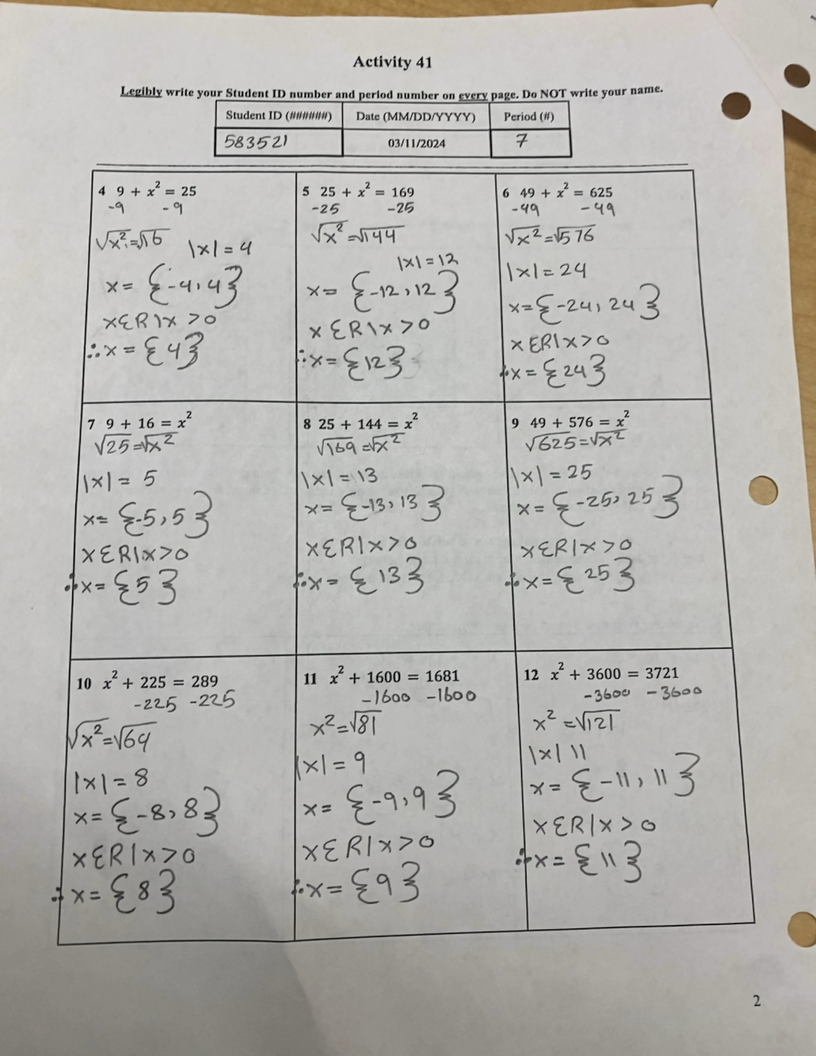 Activity 41
Legibly write your Student ID number and period number on every page. Do NOT write your name.
Student ID (######) Date (MM/DD/YYYY) Period (#)
583521 03/11/2024 7
4 9 + x² = 25
-9 -9
√x² = √16 |x| = 4
x = {-4, 4}
xƐR|x >0
∴x = {4}
5 25 + x² = 169
-25 -25
√x² = √144
|x| = 12
x = {-12, 12}
xƐR|x >0
∴x = {12}
6 49 + x² = 625
-49 -49
√x² = √576
|x| = 24
x = {-24, 24}
xƐR|x>0
∴x = {24}
7 9 + 16 = x²
√25 = √x²
|x| = 5
x = {-5, 5}
xƐR|x>0
∴x = {5}
8 25 + 144 = x²
√169 = √x²
|x| = 13
x = {-13, 13}
xƐR|x>0
∴x = {13}
9 49 + 576 = x²
√625 = √x²
|x| = 25
x = {-25, 25}
xƐR|x>0
∴x = {25}
10 x² + 225 = 289
-225 -225
√x² = √64
|x| = 8
x = {-8, 8}
xƐR|x>0
∴x = {8}
11 x² + 1600 = 1681
-1600 -1600
x² = √81
|x| = 9
x = {-9, 9}
xƐR|x>0
∴x = {9}
12 x² + 3600 = 3721
-3600 -3600
x² = √121
|x| 11
x = {-11, 11}
xƐR|x>0
∴x = {11}
2